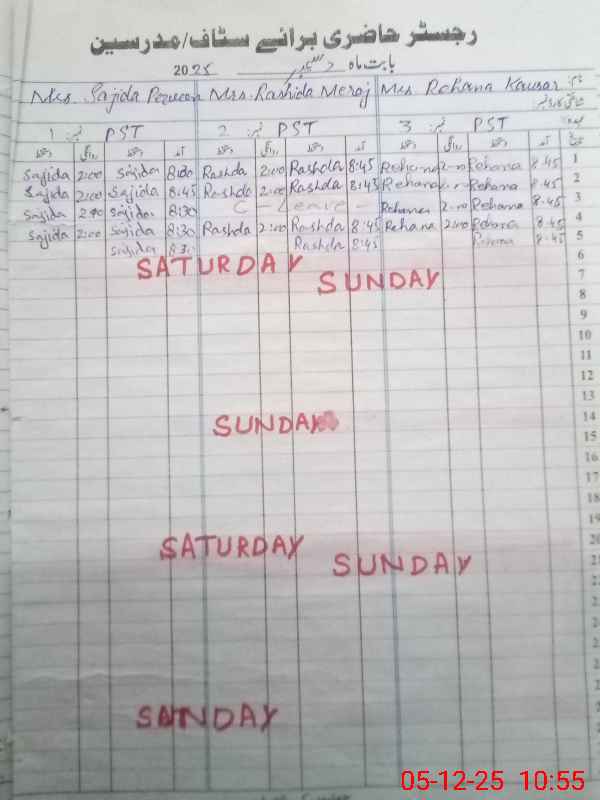 رجسٹر حاضری برائے سٹاف/مدرسین
بابت ماہ دسمبر 2025
Mrs. Sajida Parveen Mrs. Rashida Meraj Mrs Rehana Kausar نام
1 نمبر PST 2 نمبر PST 3 نمبر PST عہدہ
دستخط روانگی دستخط آمد دستخط روانگی دستخط آمد دستخط روانگی دستخط آمد تاریخ
Sajida 2:00 Sajida 8:30 Rashda 2:00 Rashda 8:45 Rehana 2:00 Rehana 8:45 1
Sajida 2:00 Sajida 8:45 Rashda 2:00 Rashda 8:45 Rehana Rehana 8:45 2
Sajida 2:00 Sajida 8:30 C - Leave - Rehana 2:00 Rehana 8:45 3
Sajida 2:00 Sajida 8:30 Rashda 2:00 Rashda 8:45 Rehana 2:00 Rehana 8:45 4
Sajida 8:30 Rashda 8:45 Rehana 8:45 5
SATURDAY 6
SUNDAY 7
8
9
10
11
12
13
SUNDAY 14
15
16
17
18
19
SATURDAY 20
SUNDAY 21
SUNDAY
05-12-25 10:55